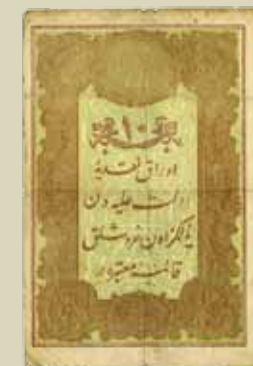 ١٠
اوراق نقدیه
دولت علیه دن
یالکز اون غروشلق
قائمه معتبره